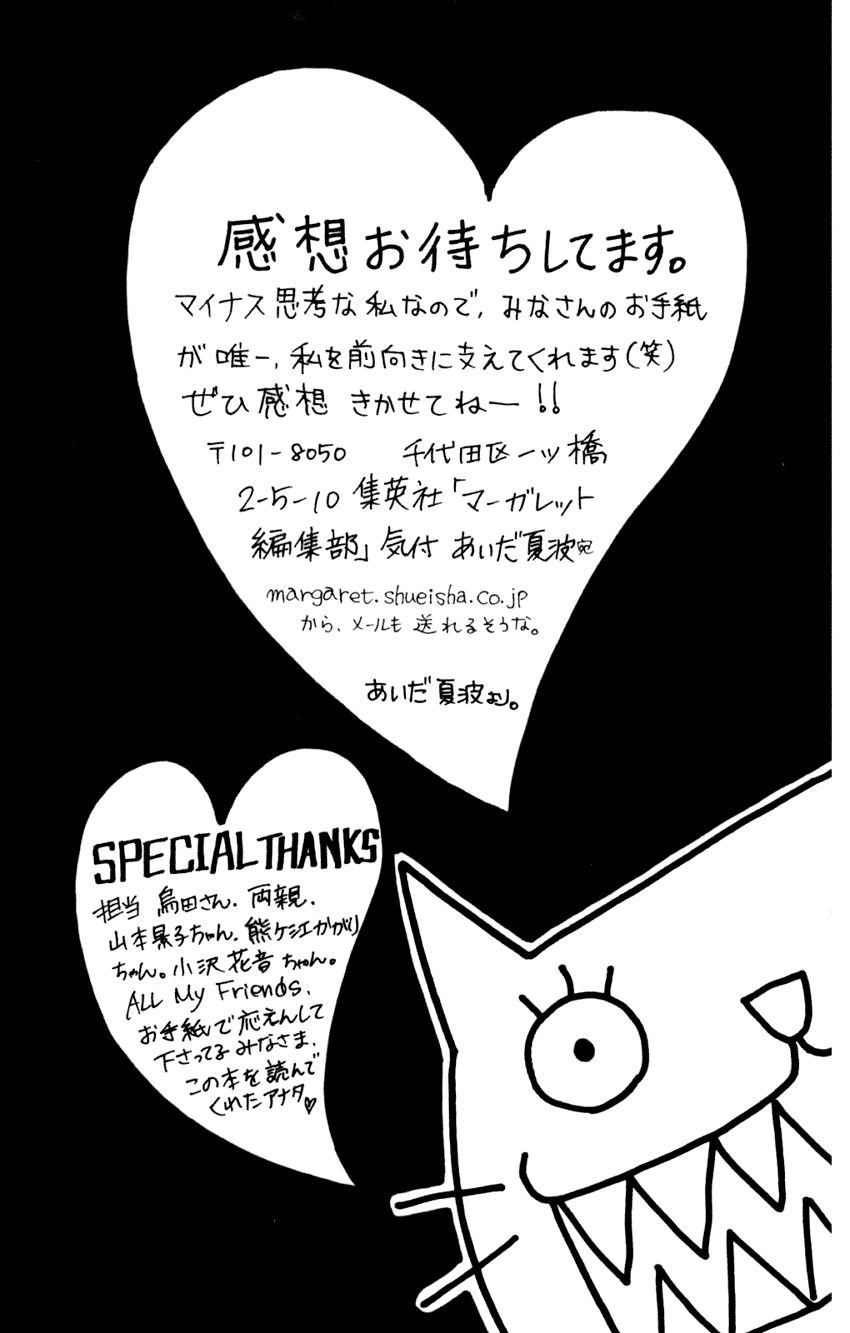 感想お待ちしてます。
マイナス思考な私なので、みなさんのお手紙
が唯一、私を前向きに支えてくれます(笑)
ぜひ感想 きかせてねー!!
〒101-8050 千代田区一ツ橋
2-5-10 集英社「マーガレット
編集部」気付 あいだ夏波宛
margaret.shueisha.co.jp
から、メールも送れるそうな。
あいだ夏波より。
SPECIAL THANKS
担当 鳥田さん、両親、
山本景子ちゃん、熊ケ江かがり
ちゃん。小沢花音ちゃん。
ALL My Friends、
お手紙で応えんして
下さってるみなさま、
この本を読んで
くれたアナタ♡